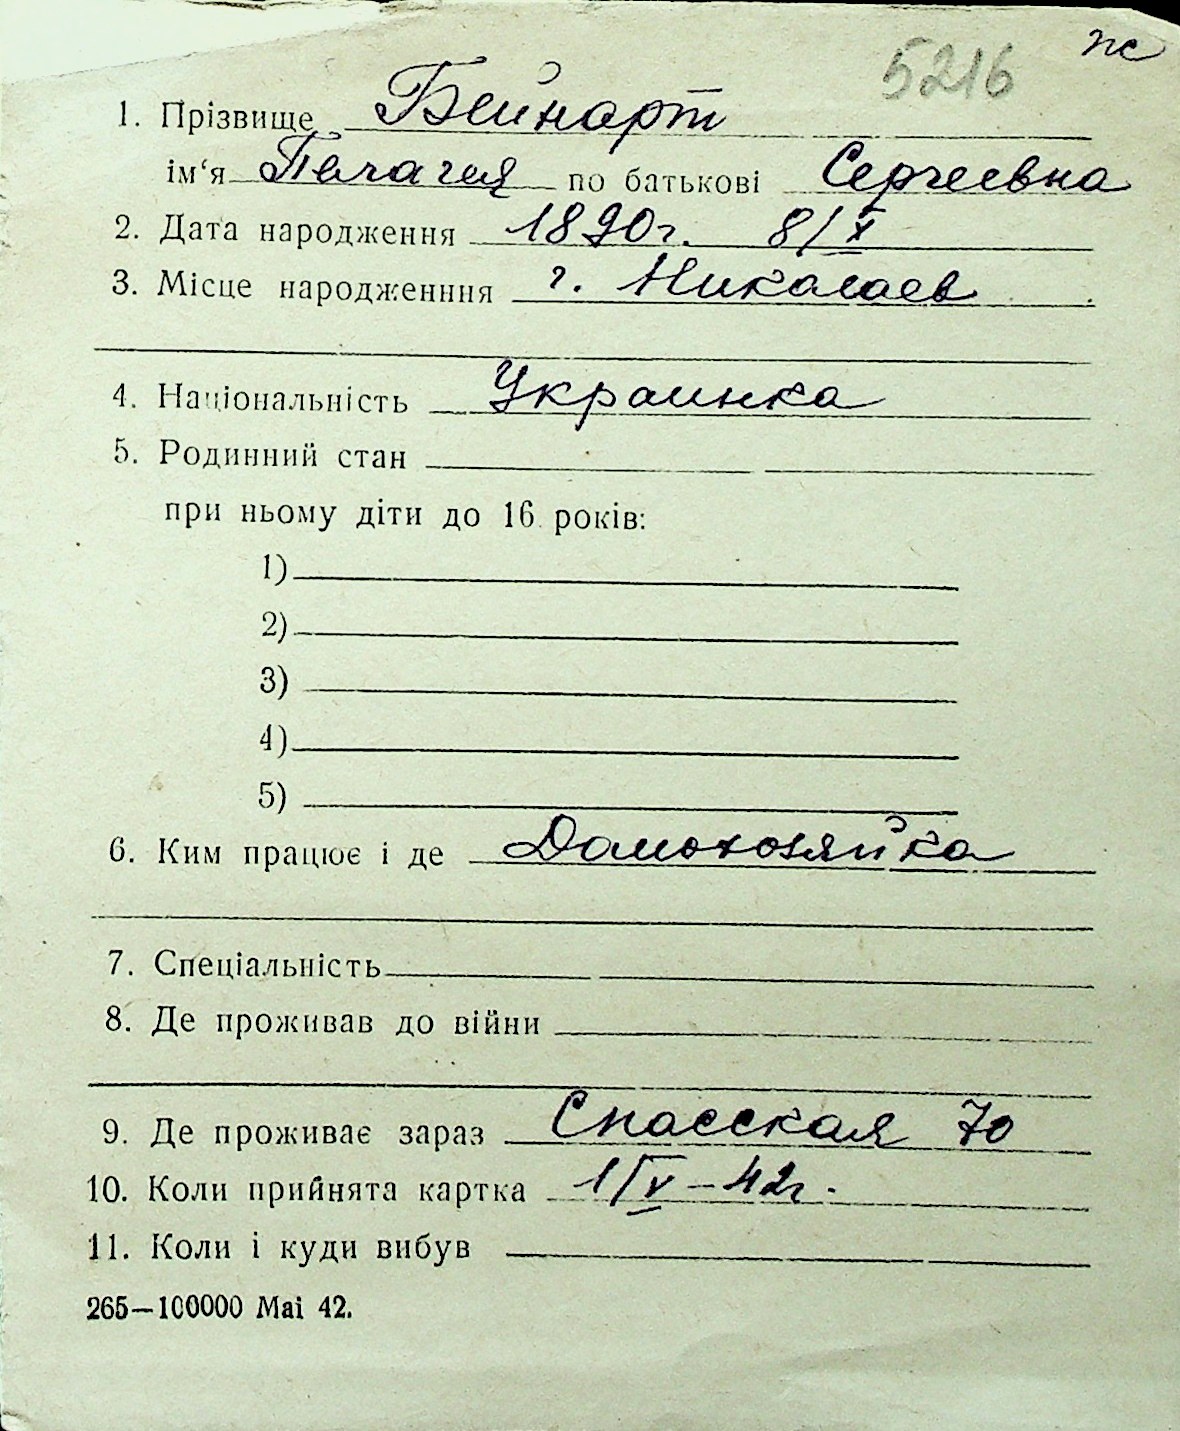 5216 ж
1. Прізвище Бейнарт
ім‘я Пелагея по батькові Сергеевна
2. Дата народження 1890г. 8/X
3. Місце народженння г. Николаев
4. Національність Украинка
5. Родинний стан
при ньому діти до 16 років:
1)
2)
3)
4)
5)
6. Ким працює і де Домохозяйка
7. Спеціальність
8. Де проживав до війни
9. Де проживає зараз Спасская 70
10. Коли прийнята картка 1/V – 42г.
11. Коли і куди вибув
265—100000 Mai 42.